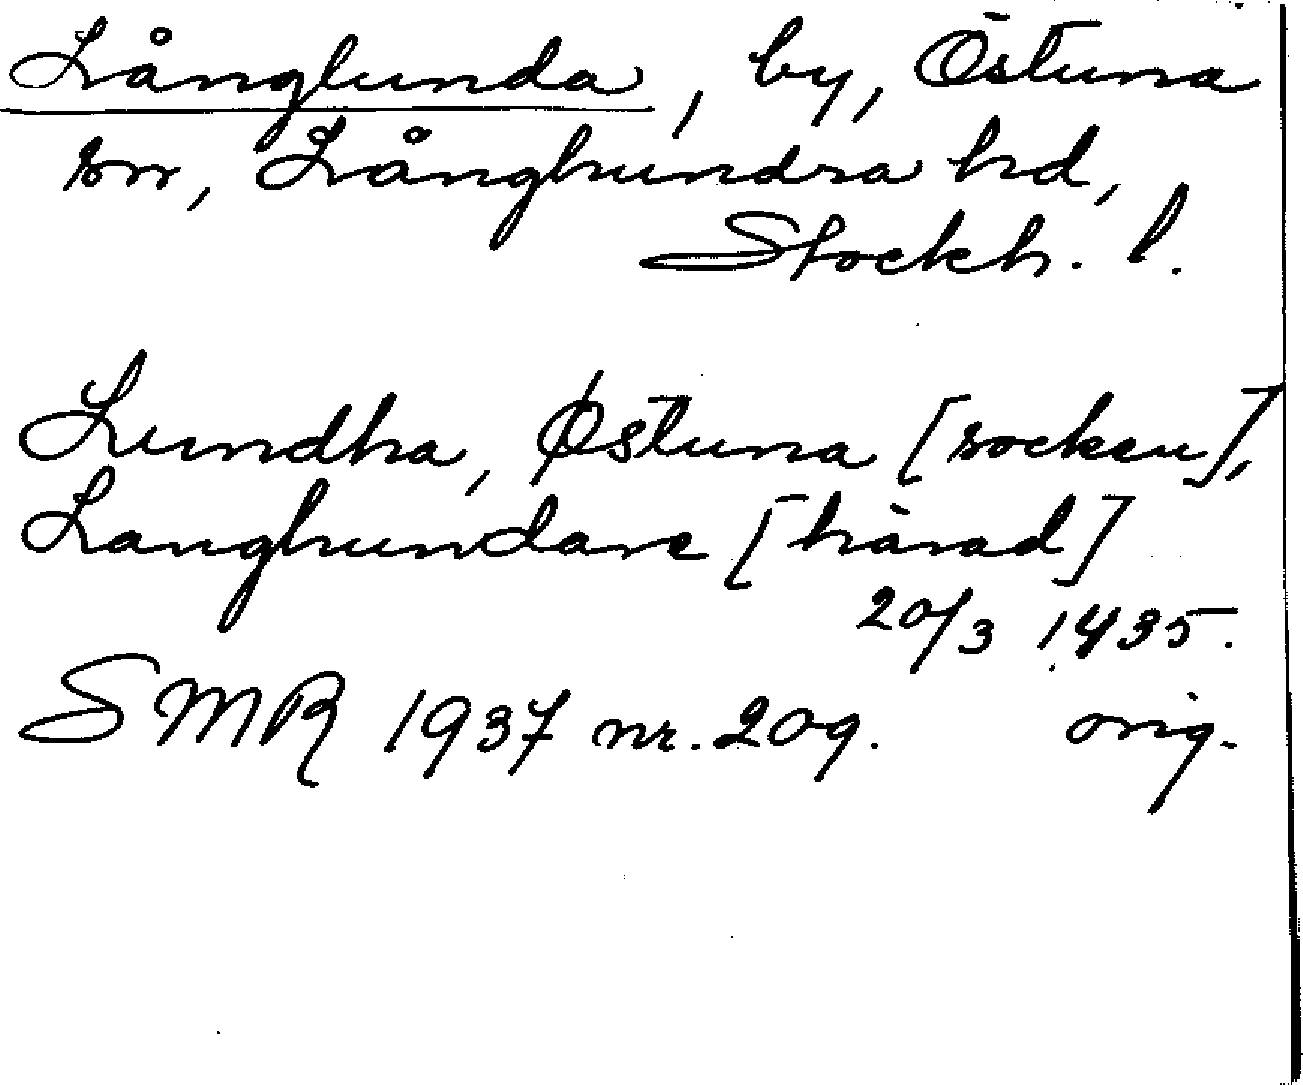 Långlunda, by, Östuna
sn, Långhundra hd,
Stockh. l.
Lundha, Østuna [socken],
Langhundare [härad]
20/3 1435.
SMR 1937 nr. 209. orig.